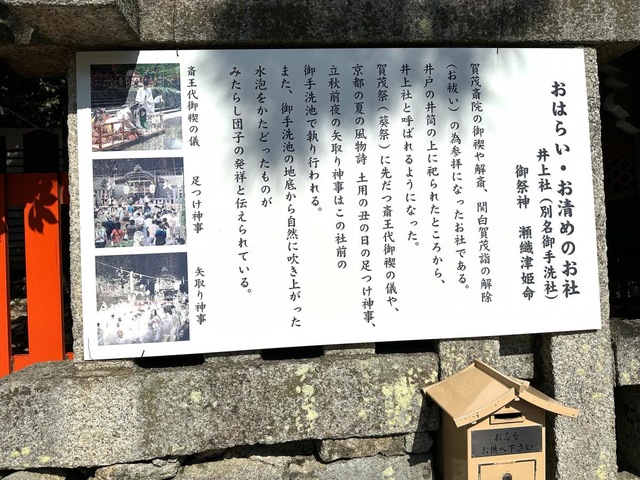 おはらい・お清めのお社
井上社（別名御手洗社）
御祭神　瀬織津姫命
賀茂斎院の御禊や解斎、関白賀茂詣の解除
（お祓い）の為参拝になったお社である。
井戸の井筒の上に祀られたところから、
井上社と呼ばれるようになった。
賀茂祭（葵祭）に先だつ斎王代御禊の儀や、
京都の夏の風物詩　土用の丑の日の足つけ神事、
立秋前夜の矢取り神事はこの社前の
御手洗池で執り行われる。
また、御手洗池の地底から自然に吹き上がった
水泡をかたどったものが
みたらし団子の発祥と伝えられている。
斎王代御禊の儀
足つけ神事
矢取り神事
お志を
お供へ下さい